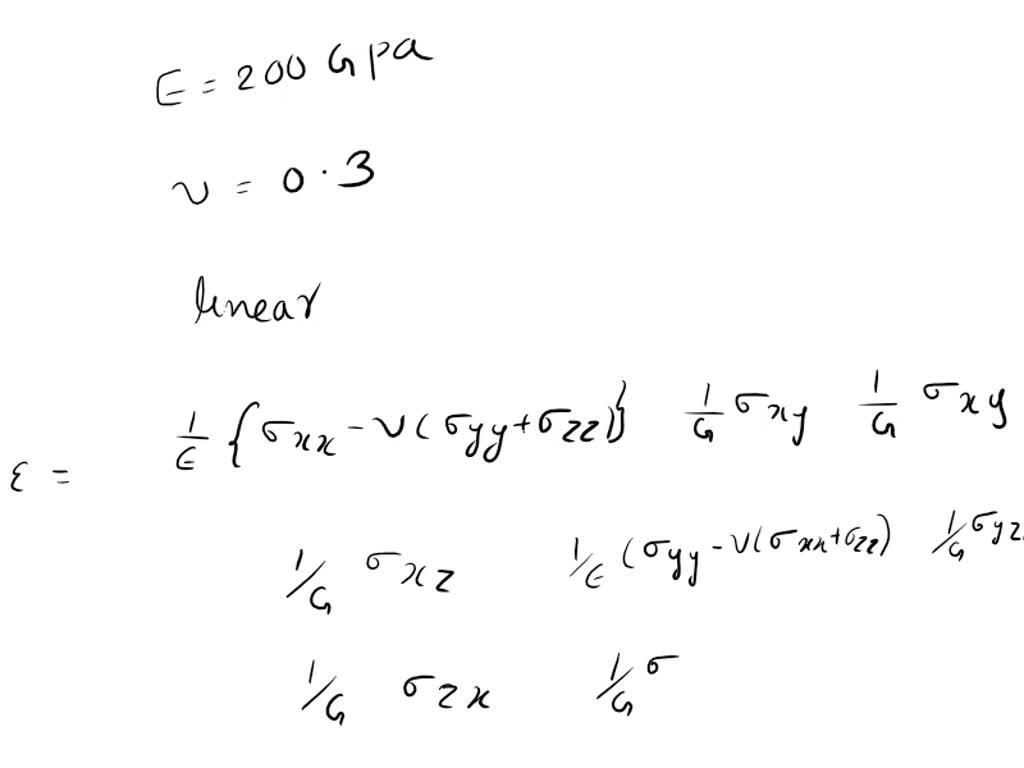 E = 200 Gpa
ν = 0.3
linear
ε = 1/E {σxx - ν(σyy+σzz)} 1/G σxy 1/G σxy
1/G σxz 1/E (σyy - ν(σxx+σzz) 1/G σyz
1/G σzx 1/G σ